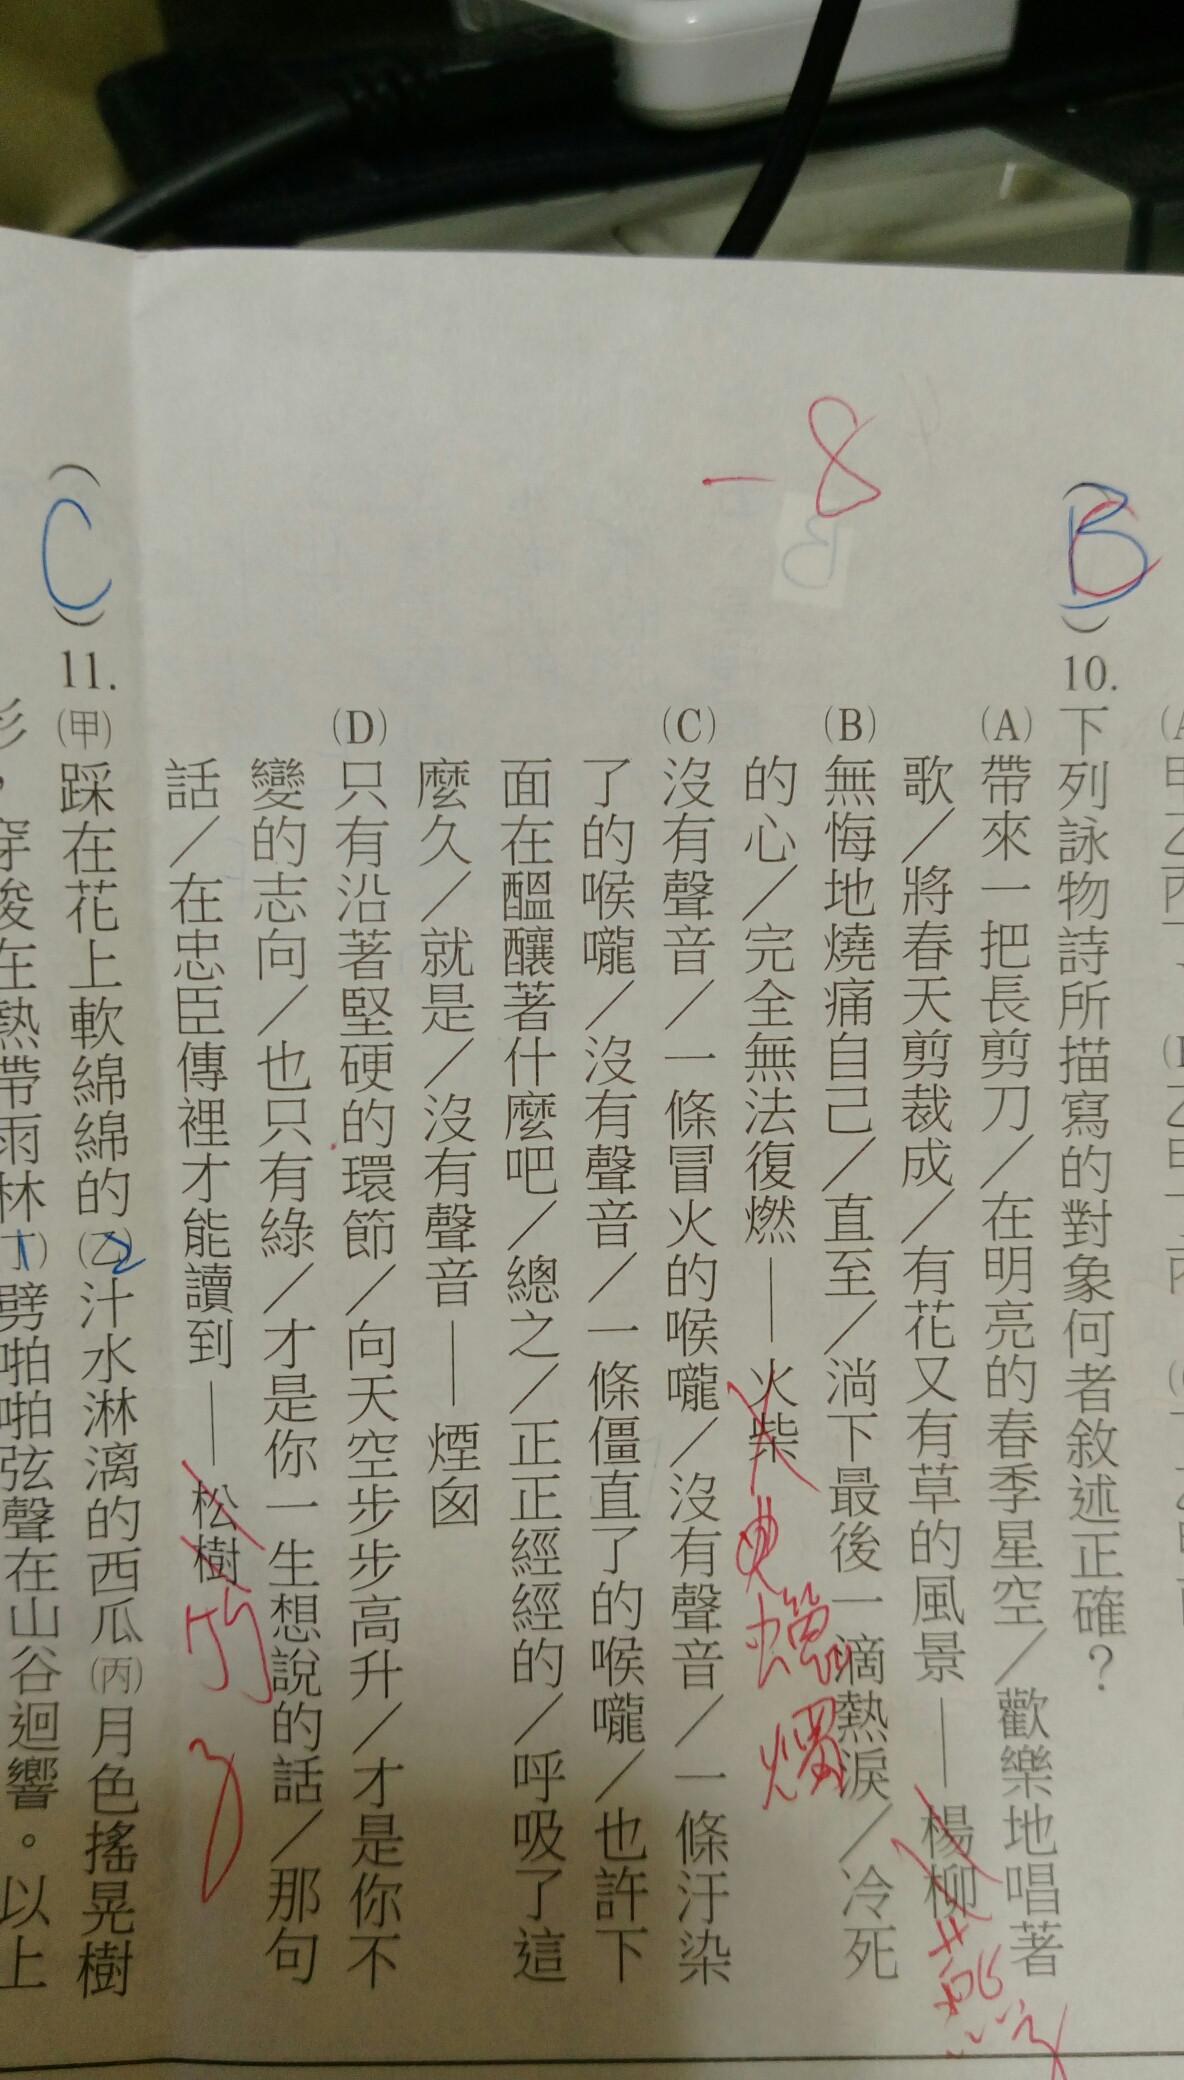 (B)10.下列詠物詩所描寫的對象何者敘述正確？
(A)帶來一把長剪刀／在明亮的春季星空／歡樂地唱著
歌／將春天剪裁成／有花又有草的風景——楊柳 燕子
(B)無悔地燒痛自己／直至／淌下最後一滴熱淚／冷死
的心／完全無法復燃——火柴 蠟燭
(C)沒有聲音／一條冒火的喉嚨／沒有聲音／一條汙染
了的喉嚨／沒有聲音／一條僵直了的喉嚨／也許下
面在醞釀著什麼吧／總之／正正經經的／呼吸了這
麼久／就是／沒有聲音——煙囪
(D)只有沿著堅硬的環節／向天空步步高升／才是你不
變的志向／也只有綠／才是你一生想說的話／那句
話／在忠臣傳裡才能讀到——松樹 竹子
-8
B
(C)11.(甲)踩在花上軟綿綿的(乙)汁水淋漓的西瓜(丙)月色搖晃樹
影，穿梭在熱帶雨林(丁)劈啪啪弦聲在山谷迴響。以上